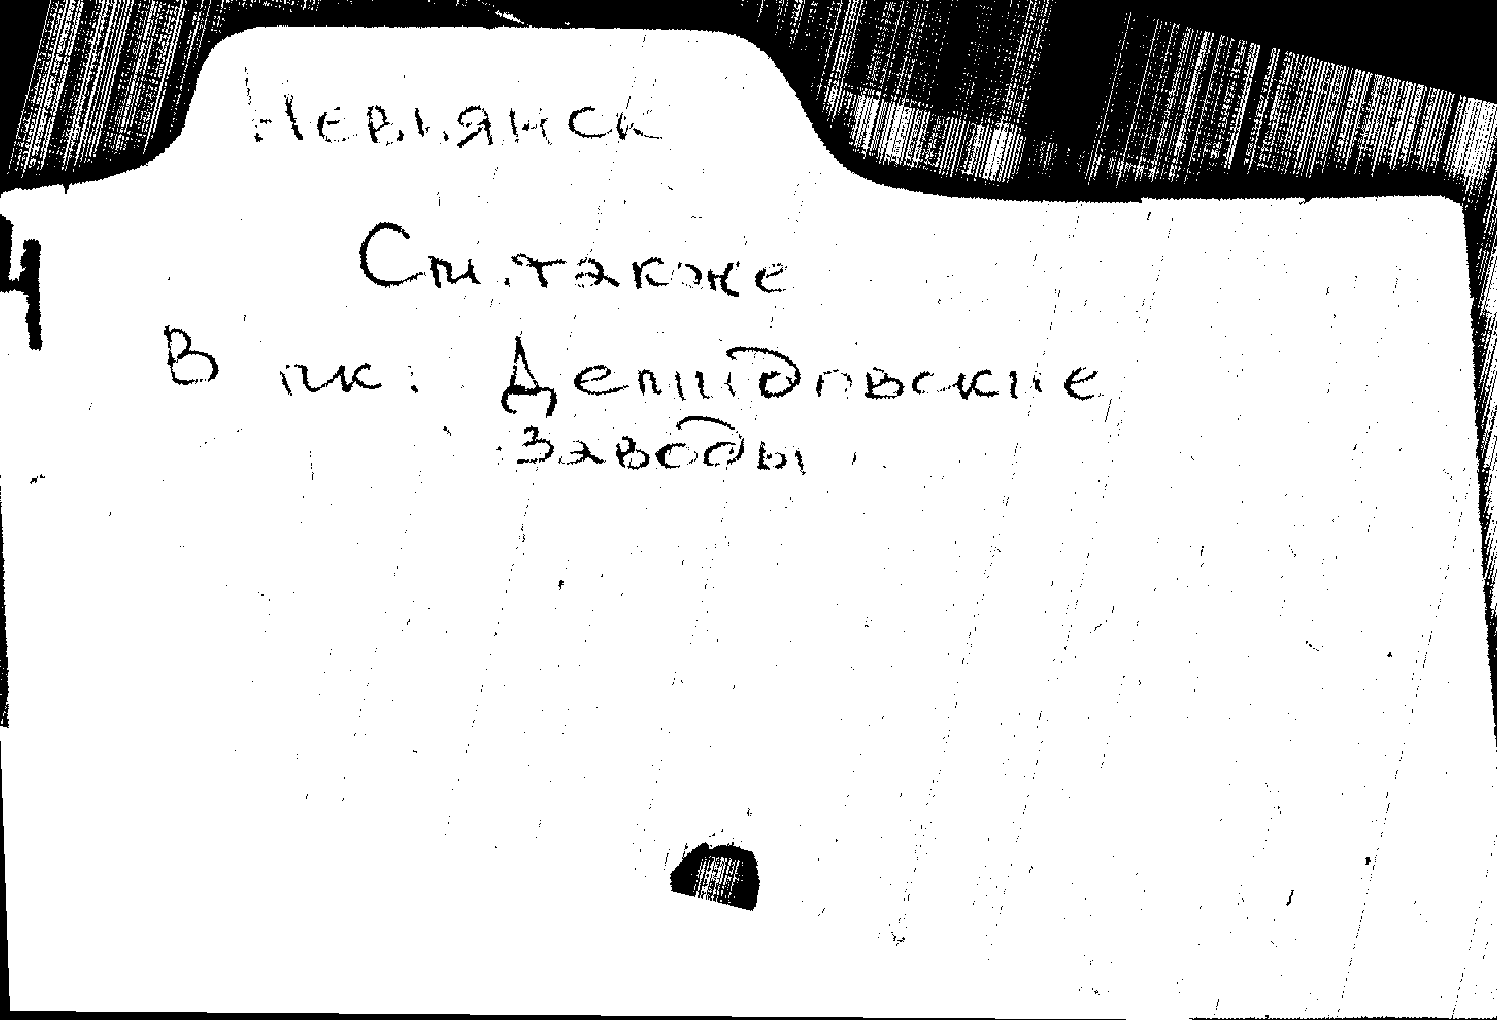 Невьянск
См. также
В пк: Демидовские
заводы